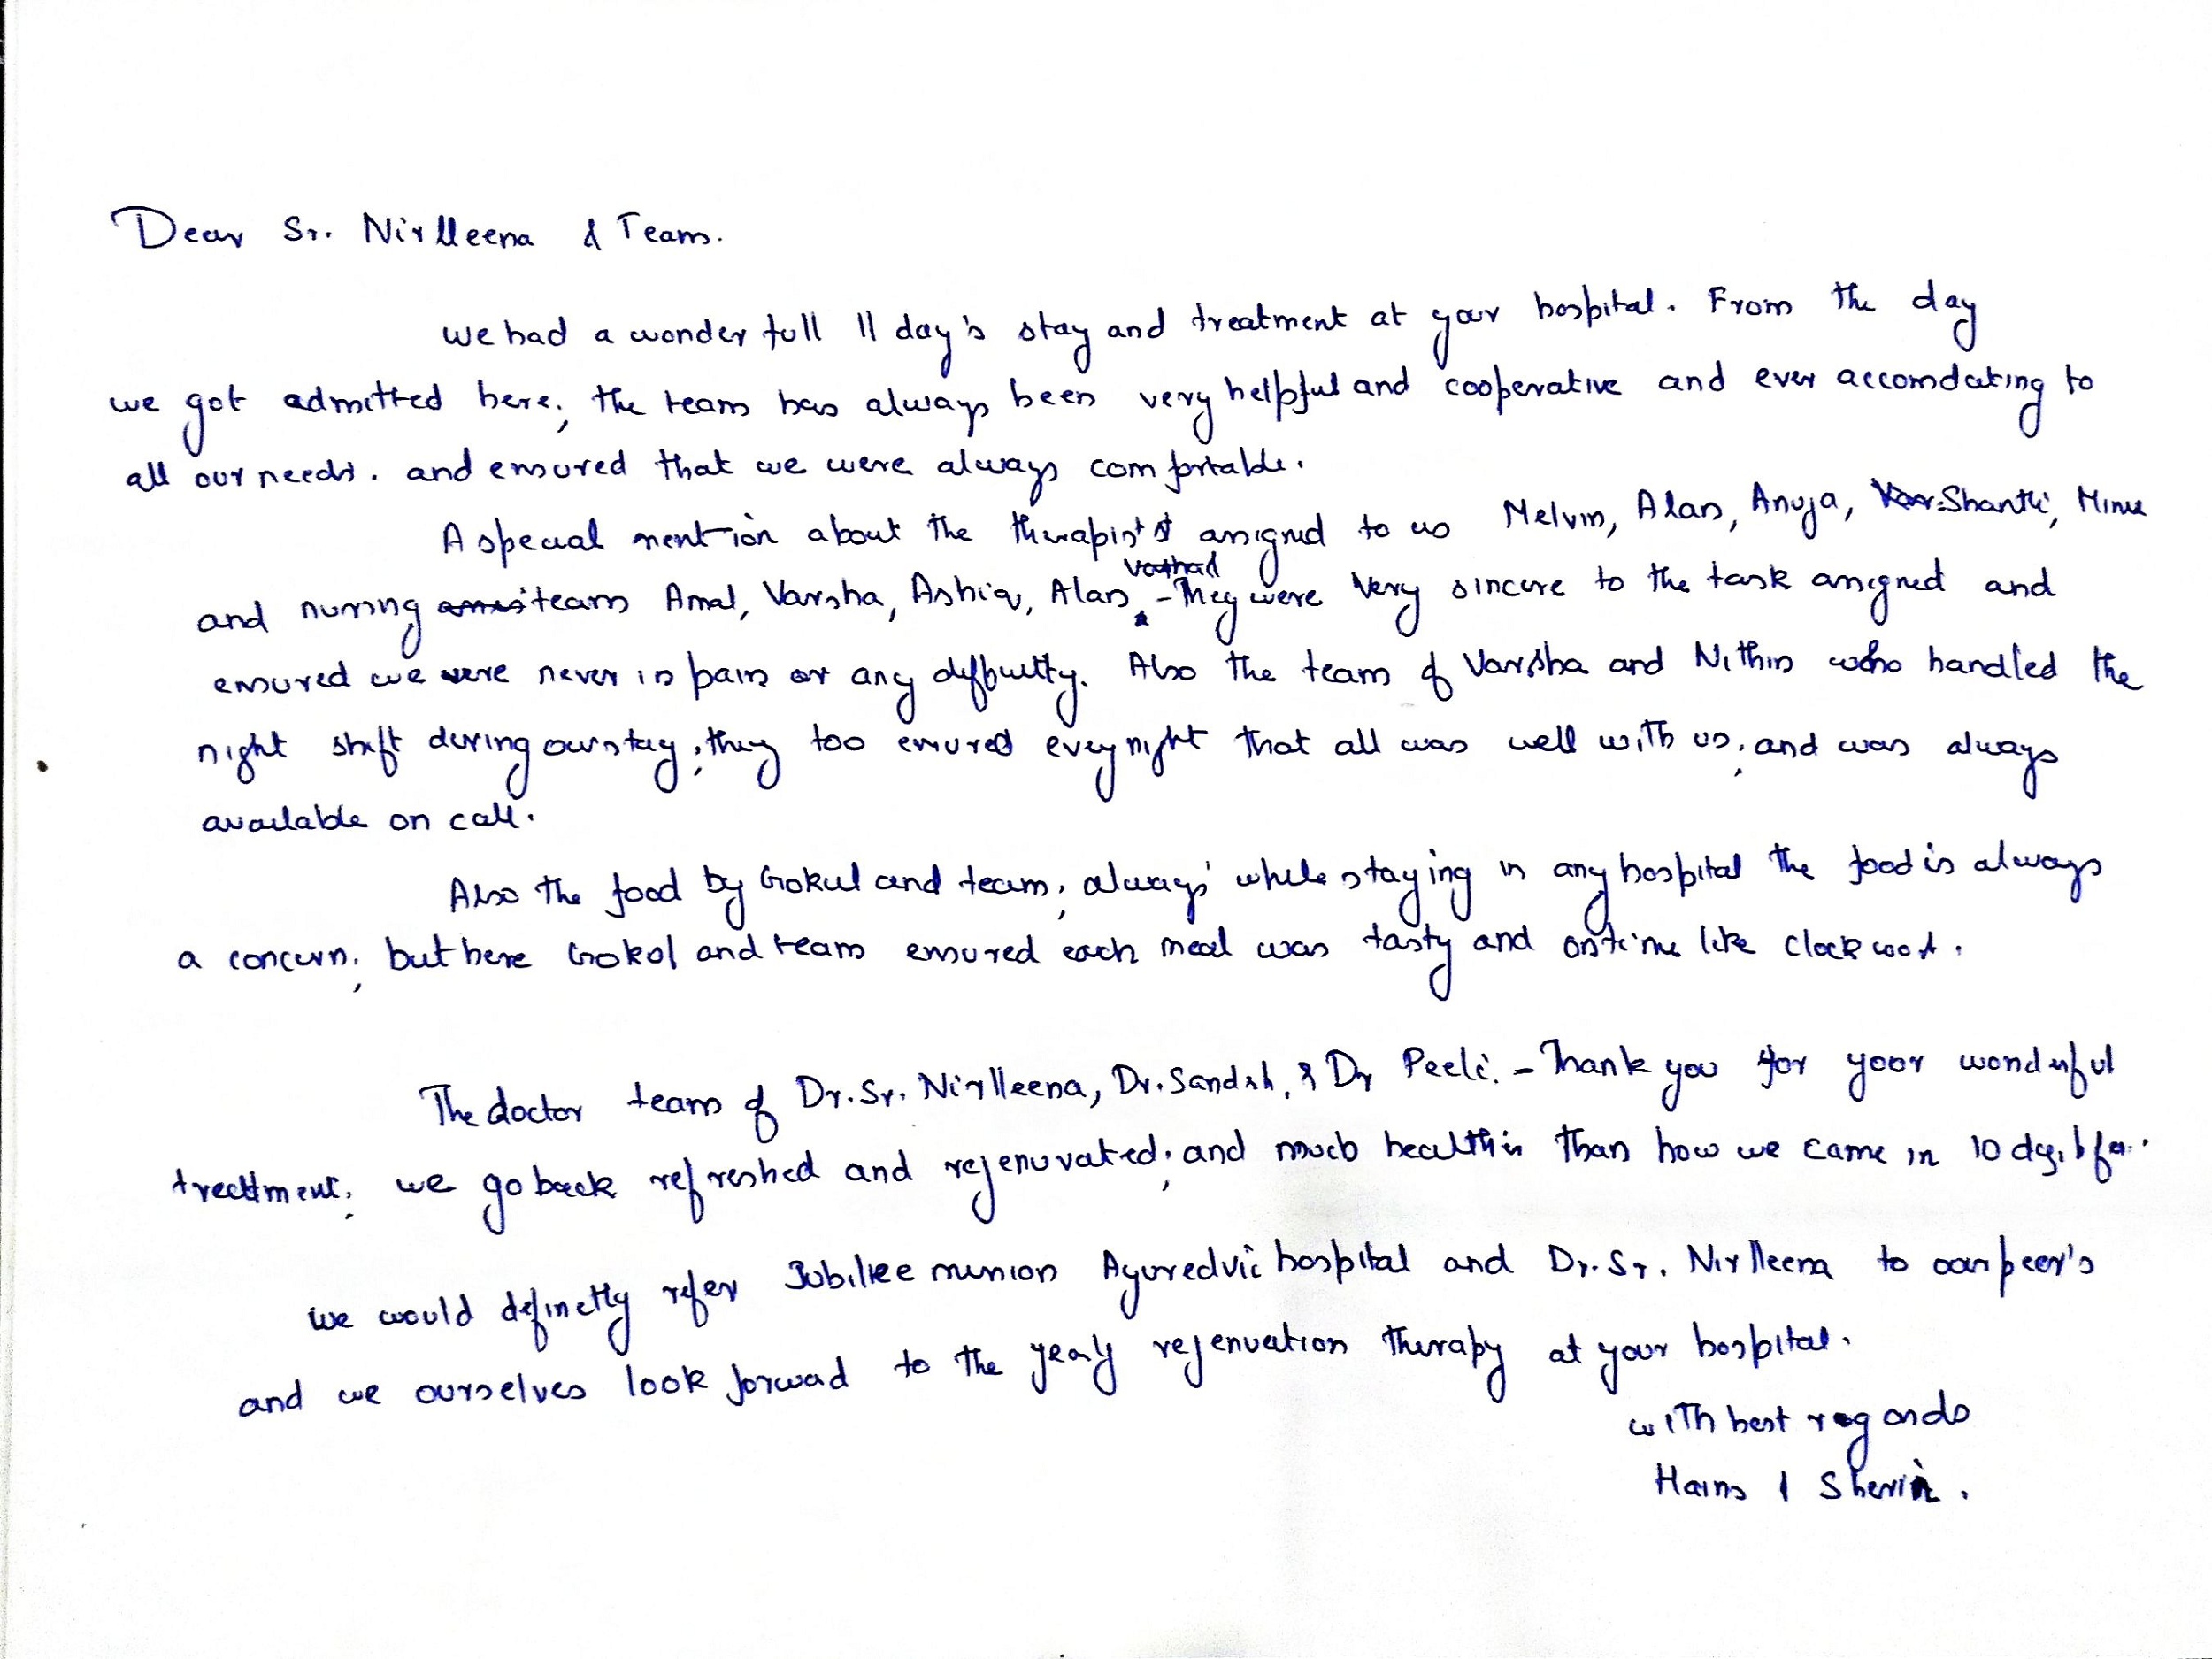 Dear Sr. Nirlleena & Team.
We had a wonder full 11 day's stay and treatment at your hospital. From the day
we got admitted here, the team has always been very helpful and cooperative and ever accomdating to
all our needs. and ensured that we were always comfortable.
A special mention about the therapist's assigned to us Melvin, Alan, Anuja, Shanthi, Minu
and nursing team Amal, Varsha, Ashiq, Alan - They were very sincere to the task assigned and
ensured we were never in pain or any difficulty. Also the team of Varsha and Nithin who handled the
night shift during our stay, they too ensured every night that all was well with us, and was always
available on call.
Also the food by Gokul and team, always while staying in any hospital the food is always
a concern, but here Gokol and team ensured each meal was tasty and ontime like clock work.
The doctor team of Dr. Sr. Nirlleena, Dr. Sandsh, & Dr Peeli. - Thank you for your wonderful
treatment, we go back refreshed and rejenuvated, and much healthier than how we came in 10 days before.
We would definetly refer Jubilee mission Ayuredvic hospital and Dr. Sr. Nirlleena to our peer's
and we ourselves look forward to the yearly rejenuation therapy at your hospital.
with best regards
Hains & Sherin.